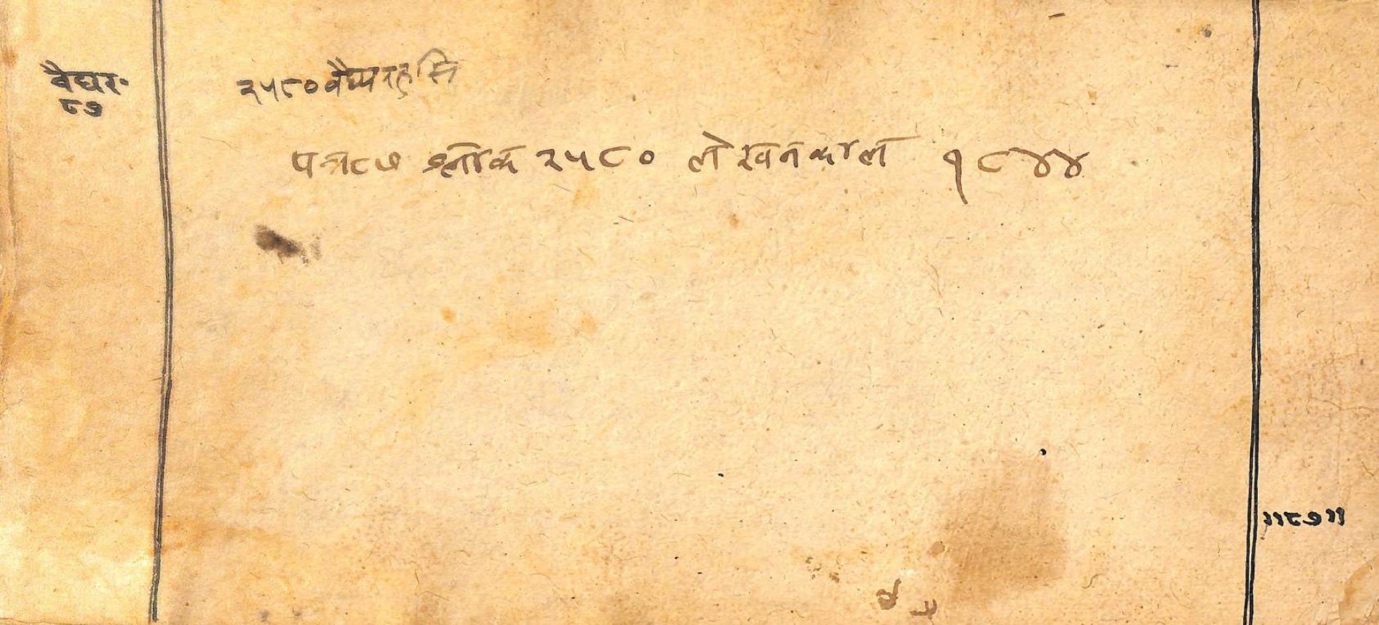 वैद्यर॰
८७
२५८० वैद्यरहसि
पत्र ८७ श्लोक २५८० लेखनकाल १८४४
॥८७॥